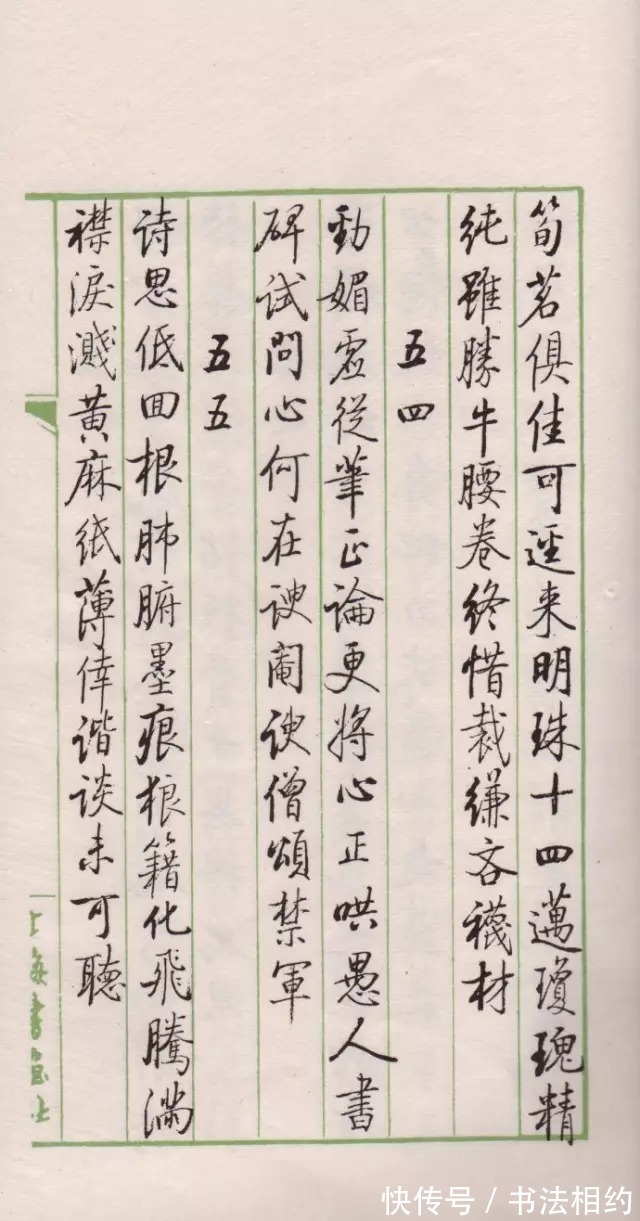 筍茗俱佳可迳来明珠十四邁瓊瑰精
纯雖勝牛腰卷终惜裁缣吝襪材
五四
勁媚虚從筆正論更將心正哄愚人書
碑试問心何在谀阉谀僧頌禁軍
五五
诗思低回根肺腑墨痕狼籍化飛騰满
襟淚濺黄麻纸薄倖谐谈未可聽
上海書画社
快传号/书法相约